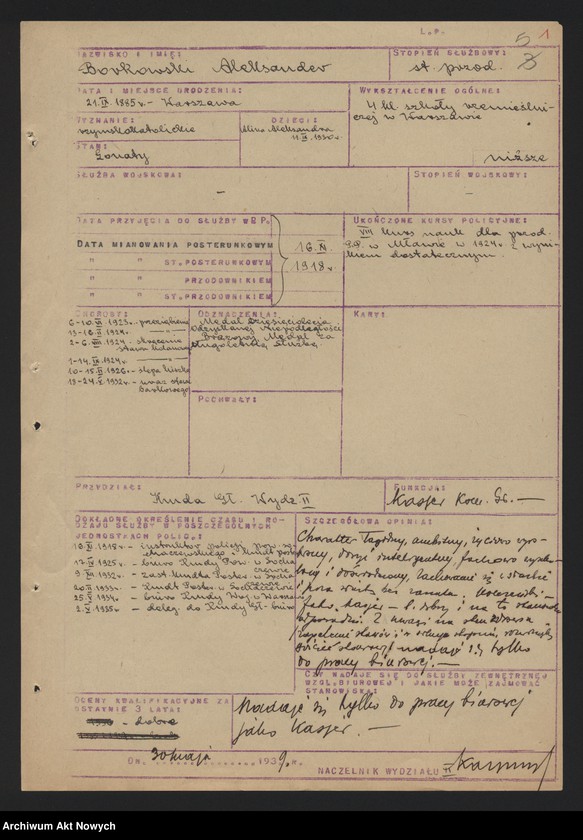 L.P.
5 1
3
NAZWISKO I IMIĘ:
Borkowski Aleksander
STOPIEŃ SŁUŻBOWY:
st. przod.
DATA I MIEJSCE URODZENIA:
21.IX 1885 r. - Warszawa
WYKSZTAŁCENIE OGÓLNE:
4 kl. szkoły rzemieślni-
czej w Warszawie
niższe
WYZNANIE:
rzymskokatolickie
DZIECI:
Aleksandra
STAN:
żonaty
SŁUŻBA WOJSKOWA:
-
STOPIEŃ WOJSKOWY:
-
DATA PRZYJĘCIA DO SŁUŻBY W P.P.
DATA MIANOWANIA POSTERUNKOWYM
" " ST.POSTERUNKOWYM
" " PRZODOWNIKIEM
" " ST.PRZODOWNIKIEM
16.XI.
1918 r.
UKOŃCZONE KURSY POLICYJNE:
VIII kurs nauk dla przod.
P.P. w Mławie w 1924 r. z wyni-
kiem dostatecznym.
CHOROBY:
6-10. 1923 r. - przeziębienie
13-18. 1924 r.
2-6. 1924 - skręcenie
stawu
1-14.IX.1924 r.
10-15.II 1926 r. - ślepa kiszka
19-24.X 1932 r. - uraz stawu
barkowego
ODZNACZENIA:
Medal Dziesięciolecia
Odzyskanej Niepodległości
Brązowy Medal za
długoletnią służbę
KARY:
POCHWAŁY:
PRZYDZIAŁ:
Kmda Gł. Wydz II
FUNKCJA:
Kasjer Kom. Gł. -
DOKŁADNE OKREŚLENIE CZASU I RO-
DZAJU SŁUŻBY W POSZCZEGÓLNYCH
JEDNOSTKACH POLICJI:
16.XI.1918 r. - instruktor Policji Pow.
17.IX 1925 r. - biuro Kmdy Pow. w Socha-
czewie
9. 1932 r. - zast. Kmdta Poster. w Socha-
czewie
20. 1933 r. - Kmdt Poster. w
25.V 1934 r. - biuro Kmdy Woj. w Warsz.
2.X 1935 r. - deleg. do Kmdy Gł. - biuro
SZCZEGÓŁOWA OPINIA:
Charakter łagodny, ambitny, życiowo wyro-
biony, dosyć inteligentny, fachowo
i doświadczony, zachowanie się w służbie
i poza służbą bez zarzutu.
Jako kasjer - b. dobry i na to stanowisko
odpowiedni. Z uwagi na stan zdrowia
nadaje się tylko
do pracy biurowej. -
CZY NADAJE SIĘ DO SŁUŻBY ZEWNĘTRZNEJ
WZGL.BIUROWEJ I JAKIE MOŻE ZAJMOWAĆ
STANOWISKA:
Nadaje się tylko do pracy biurowej
jako kasjer. -
OCENY KWALIFIKACYJNE ZA
OSTATNIE 3 LATA:
- dobra
DN. 30 maja 1939 r.
NACZELNIK WYDZIAŁU II
Archiwum Akt Nowych